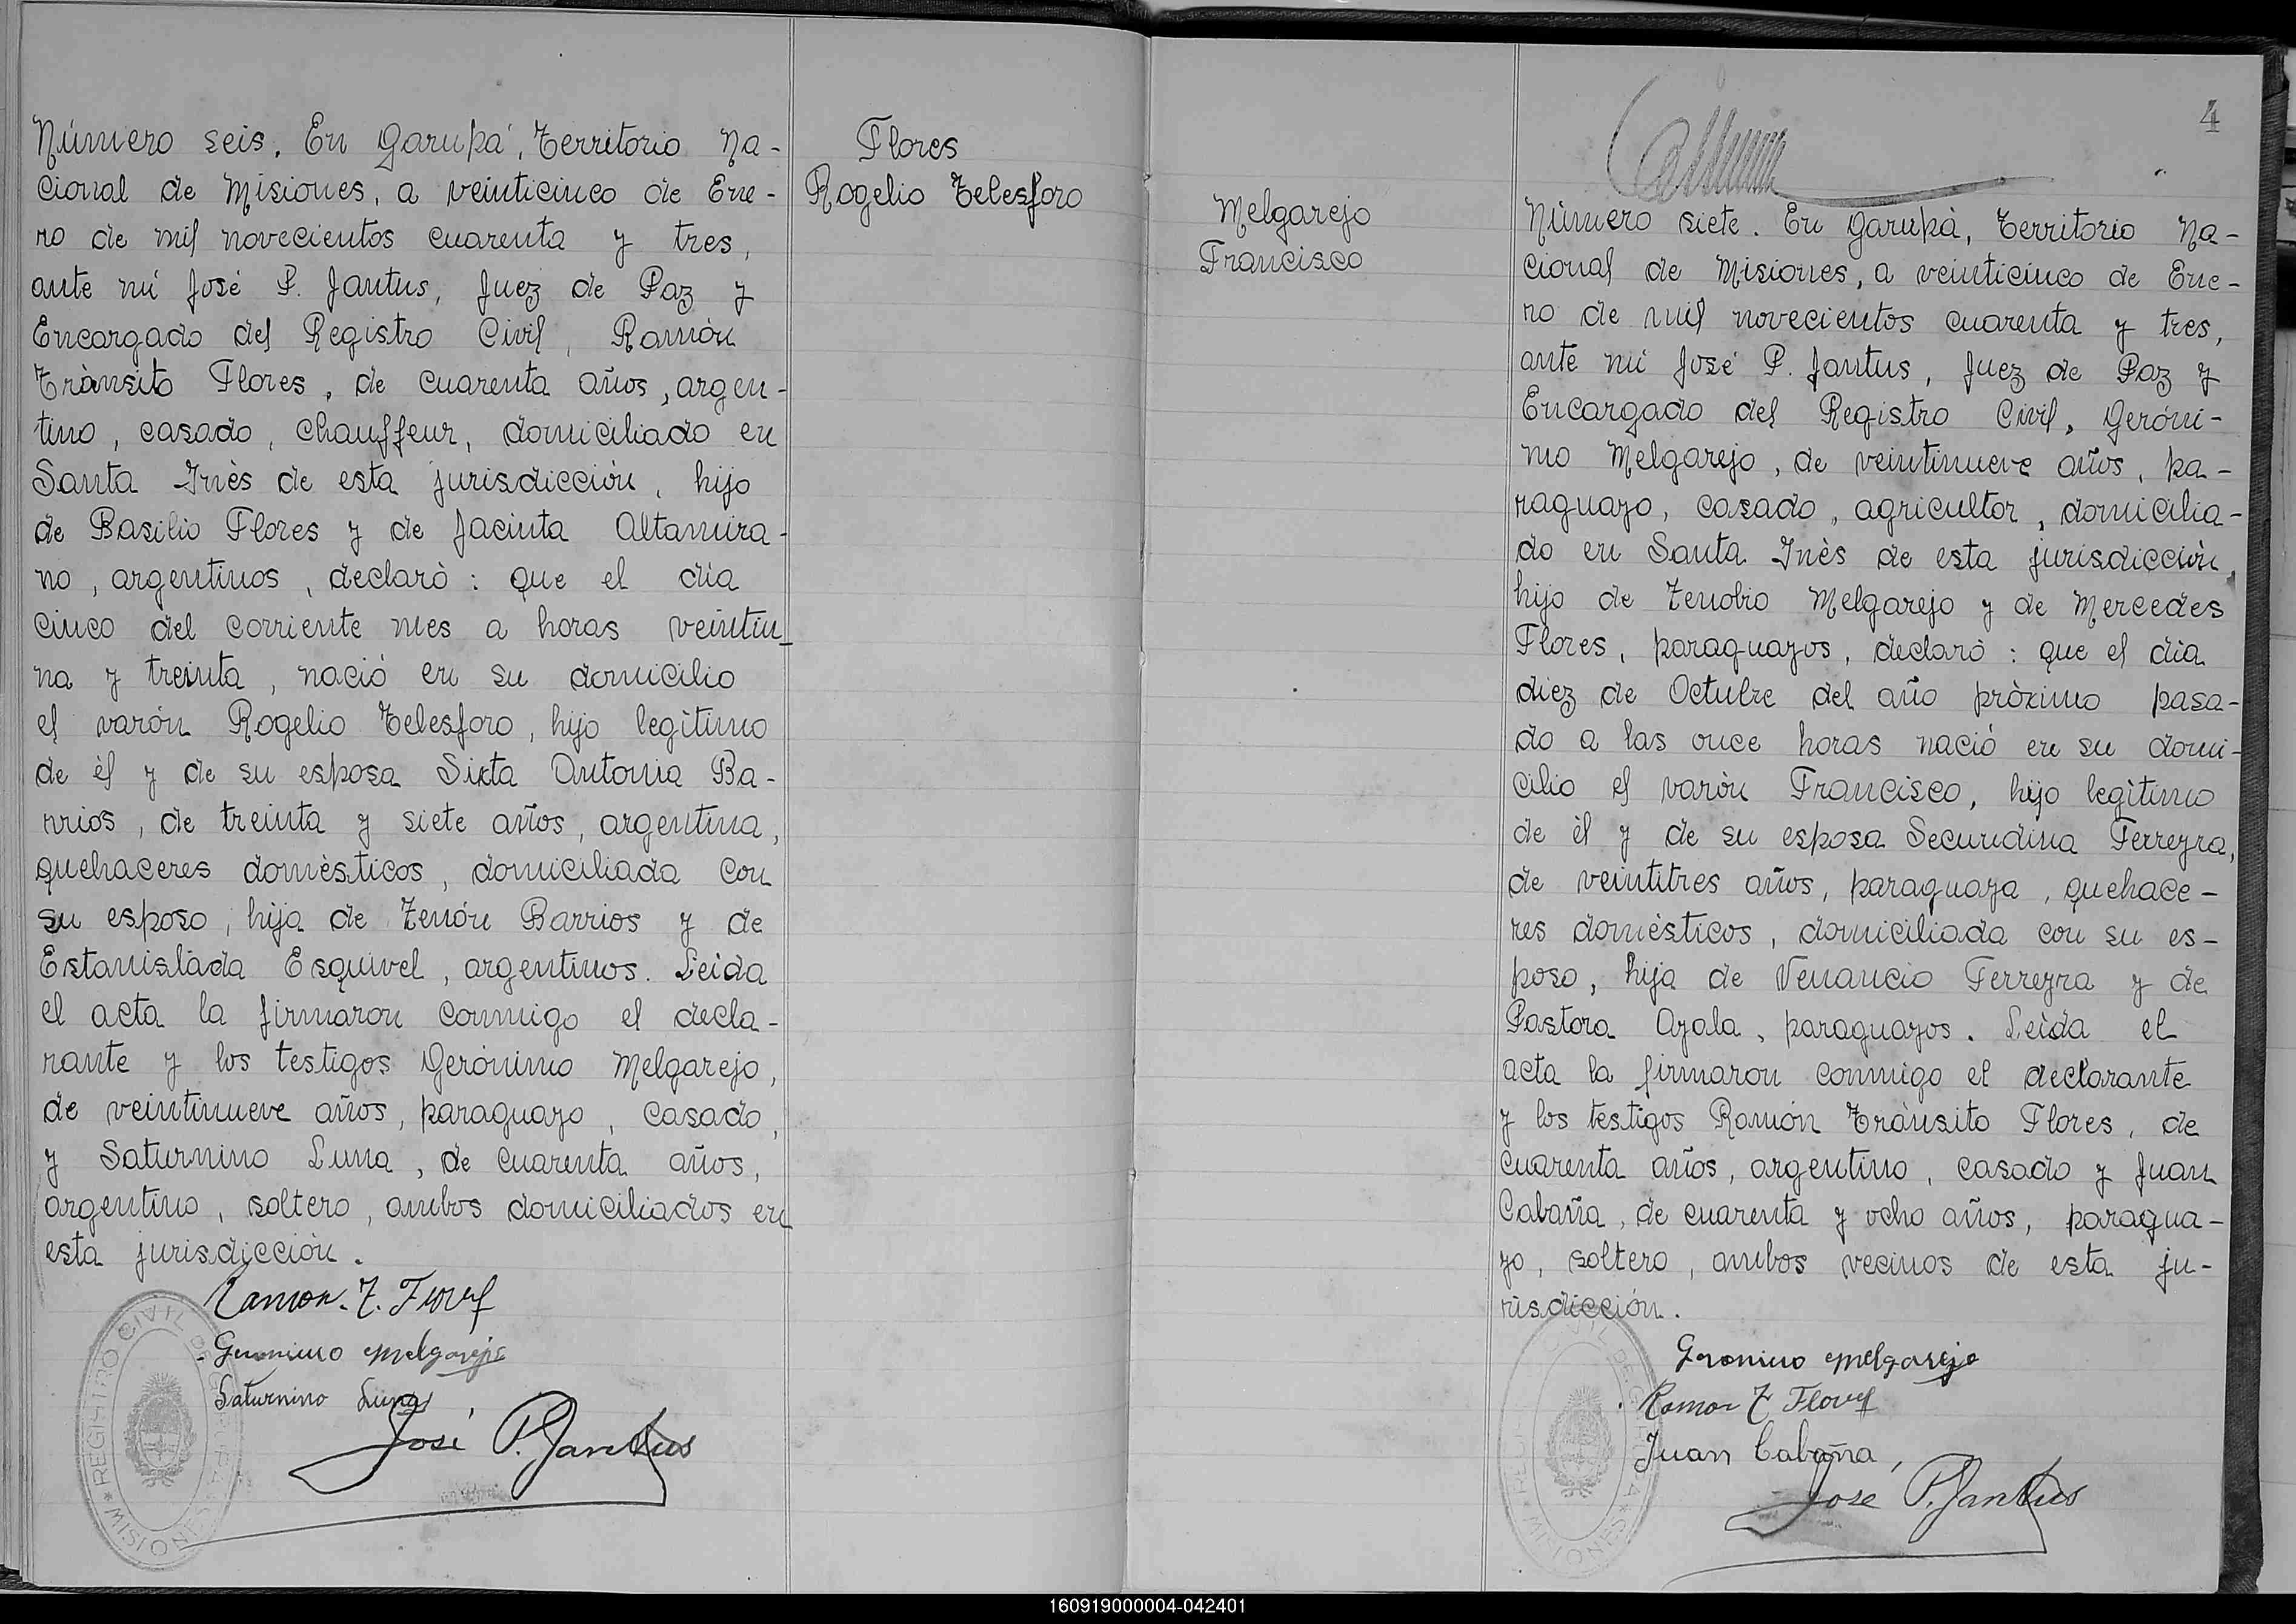 Número seis. En Garupá, Territorio Na-
cional de Misiones, a veinticinco de Ene-
ro de mil novecientos cuarenta y tres,
ante mi José P. Jantus, Juez de Paz y
Encargado del Registro Civil, Ramón
Trànsito Flores, de cuarenta años, argen-
tino, casado, chauffeur, domiciliado en
Santa Inès de esta jurisdicciòn, hijo
de Basilio Flores y de Jacinta Altamira-
no, argentinos, declarò: que el dia
cinco del corriente mes a horas veintiu-
na y treinta, naciò en su domicilio
el varón Rogelio Telesforo, hijo legitimo
de èl y de su esposa Sixta Antonia Ba-
rrios, de treinta y siete años, argentina,
quehaceres domèsticos, domiciliada con
su esposo, hija de Zenón Barrios y de
Estanislada Esquivel, argentinos. Leida
el acta la firmaron conmigo el decla-
rante y los testigos Gerónimo Melgarejo,
de veintinueve años, paraguayo, casado,
y Saturnino Luna, de cuarenta años,
argentino, soltero, ambos domiciliados en
esta jurisdicciòn.
Ramon. T. Flores
Geronimo Melgarejo
Saturnino Luna
José P. Jantus
REGISTRO CIVIL DE GARUPA * MISIONES *
Flores
Rogelio Telesforo
Melgarejo
Francisco
4
Número siete. En Garupà, Territorio Na-
cional de Misiones, a veinticinco de Ene-
ro de mil novecientos cuarenta y tres,
ante mi José P. Jantus, Juez de Paz y
Encargado del Registro Civil, Geróni-
mo Melgarejo, de veintinueve años, pa-
raguayo, casado, agricultor, domicilia-
do en Santa Inès de esta jurisdicciòn,
hijo de Zenobio Melgarejo y de Mercedes
Flores, paraguayos, declarò: que el dia
diez de Octubre del año pròximo pasa-
do a las once horas nació en su domi-
cilio el varòn Francisco, hijo legìtimo
de èl y de su esposa Secundina Ferreyra,
de veintitres años, paraguaya, quehace-
res domèsticos, domiciliada con su es-
poso, hija de Venancio Ferreyra y de
Pastora Ayala, paraguayos. Leìda el
acta la firmaron conmigo el declarante
y los testigos Ramón Trànsito Flores, de
cuarenta años, argentino, casado y Juan
Cabaña, de cuarenta y ocho años, paragua-
yo, soltero, ambos vecinos de esta ju-
risdicción.
Geronimo Melgarejo
Ramon T Flores
Juan Cabaña
José P. Jantus
160919000004-042401